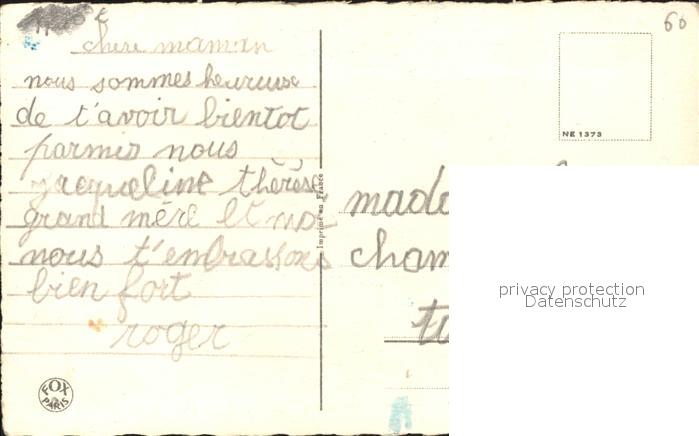 60
chere maman
nous sommes heureuse
de t'avoir bientot
parmis nous
jacqueline thérèse
grand mére et moi
nous t'embrassons
bien fort
roger
NE 1373
Imprimé en France
mada
cham
privacy protection
Datenschutz
FOX
PARIS